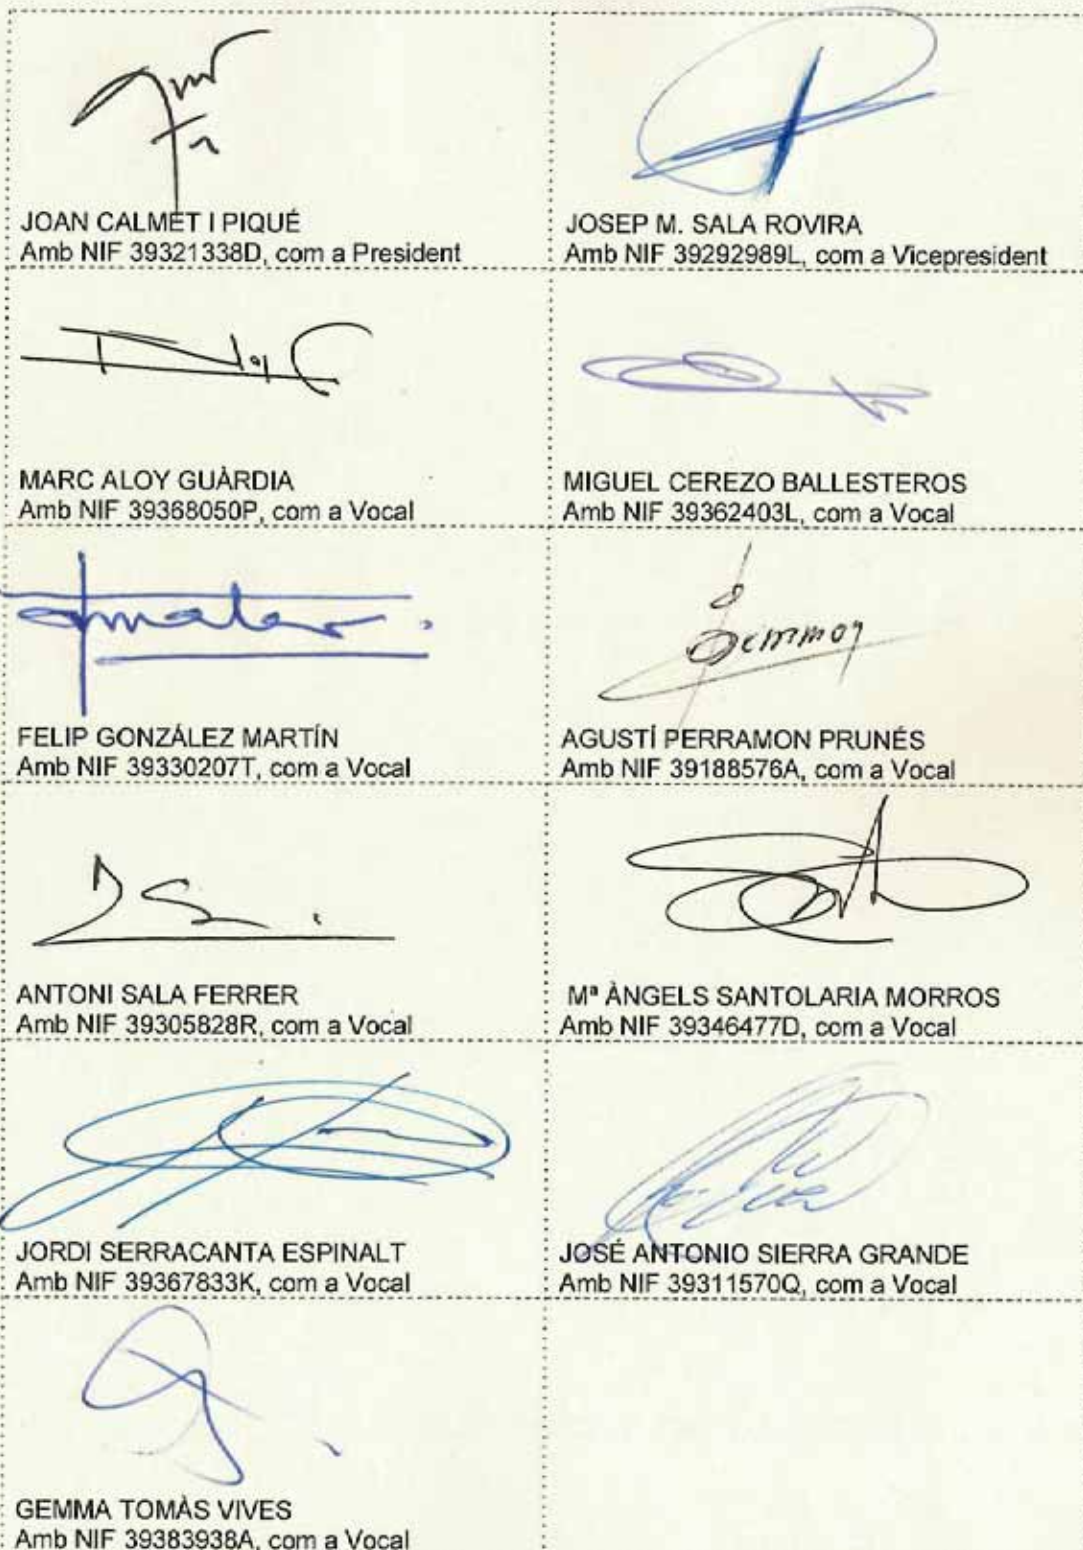 JOAN CALMET I PIQUÉ
Amb NIF 39321338D, com a President
JOSEP M. SALA ROVIRA
Amb NIF 39292989L, com a Vicepresident
MARC ALOY GUÀRDIA
Amb NIF 39368050P, com a Vocal
MIGUEL CEREZO BALLESTEROS
Amb NIF 39362403L, com a Vocal
FELIP GONZÁLEZ MARTÍN
Amb NIF 39330207T, com a Vocal
AGUSTÍ PERRAMON PRUNÉS
Amb NIF 39188576A, com a Vocal
ANTONI SALA FERRER
Amb NIF 39305828R, com a Vocal
Mª ÀNGELS SANTOLARIA MORROS
Amb NIF 39346477D, com a Vocal
JORDI SERRACANTA ESPINALT
Amb NIF 39367833K, com a Vocal
JOSÉ ANTONIO SIERRA GRANDE
Amb NIF 39311570Q, com a Vocal
GEMMA TOMÀS VIVES
Amb NIF 39383938A, com a Vocal